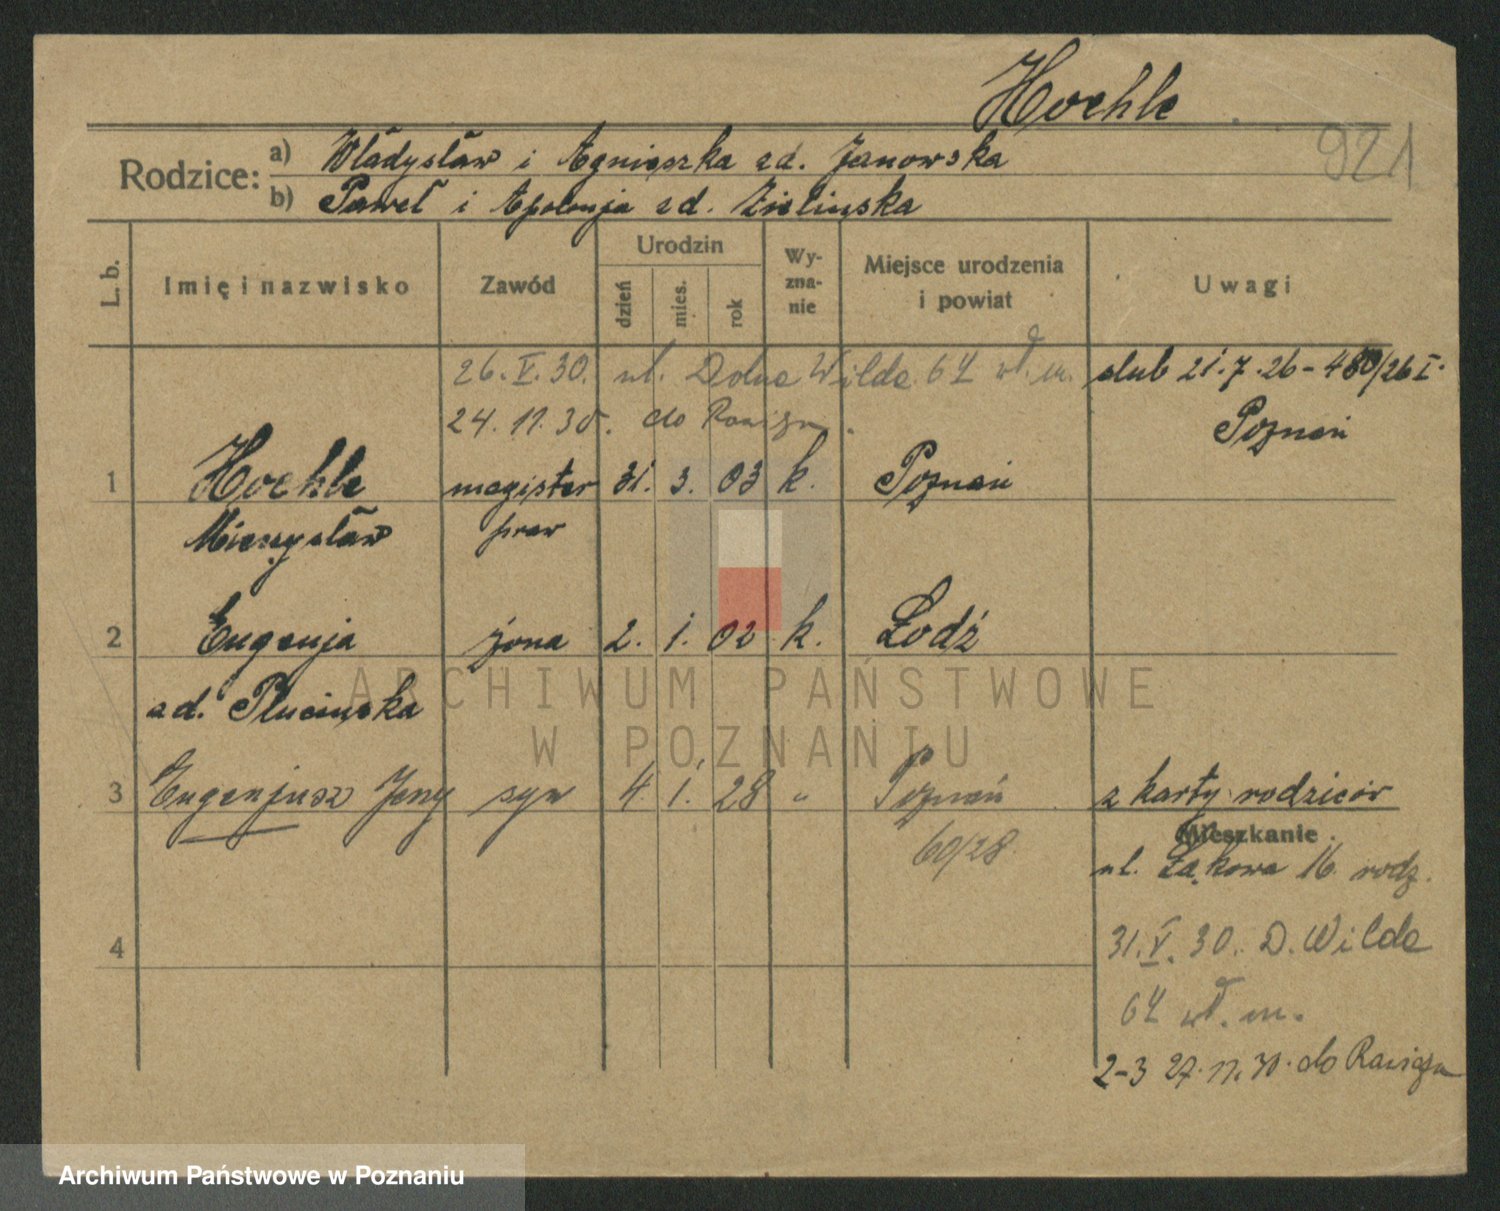 Hoehle
921
Rodzice: a) Władysław i Agnieszka zd. Janowska
b) Paweł i Apolonja zd. Zielińska
L. b.
Imię i nazwisko
Zawód
Urodzin
dzień
mies.
rok
Wy-
zna-
nie
Miejsce urodzenia
i powiat
Uwagi
26. V. 30. ul. Dolna Wilda 64 wł. m. slub 21. 7. 26 - 480/26 I.
24. 11. 30. do Rawicza. Poznań
1 Hoehle magister 31. 3. 03 k. Poznań
Mieczysław praw
2 Eugenja żona 2. 1. 02 k. Łodź
zd. Plucińska
3 Eugenjusz Jerzy syn 4 1. 28 " Poznań z karty rodziców
60/28
Mieszkanie
ul. Łąkowa 16 rodz.
4
31. V. 30. D. Wilda
64 wł. m.
2-3 27. 11. 30. do Rawicza
ARCHIWUM PAŃSTWOWE
W POZNANIU
Archiwum Państwowe w Poznaniu